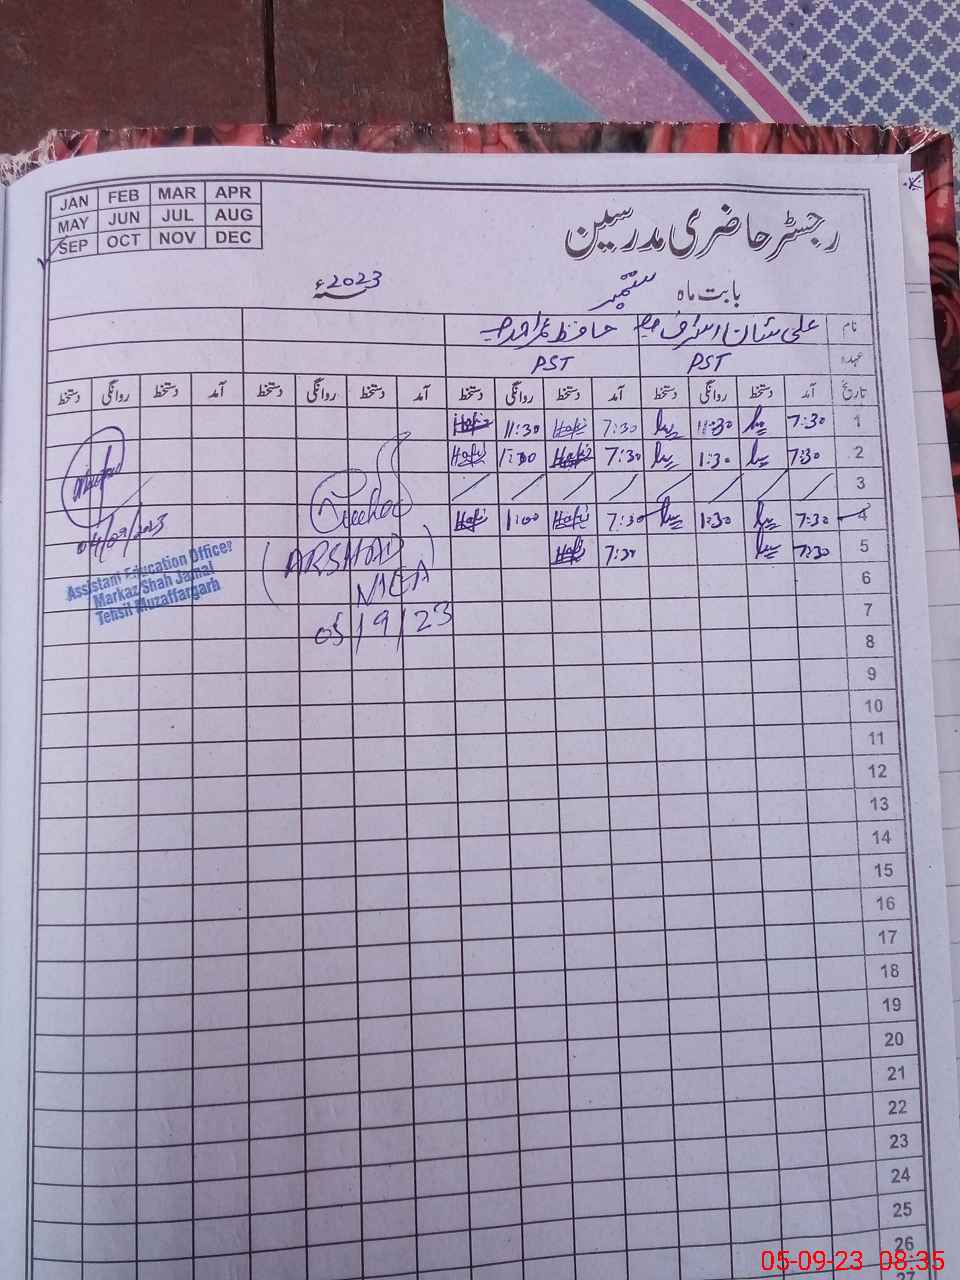 JAN FEB MAR APR
MAY JUN JUL AUG
SEP OCT NOV DEC
رجسٹر حاضری مدرسین
بابت ماہ ستمبر سنہ 2023ء
نام علی شان اشرف حافظ
عہدہ PST PST
تاریخ آمد دستخط روانگی دستخط آمد دستخط روانگی دستخط آمد دستخط روانگی دستخط آمد دستخط روانگی دستخط
1 7:30 11:30 7:30 Hafiz 11:30 Hafiz
2 7:30 1:30 7:30 Hafiz Hafiz
3
4 7:30 1:30 7:30 Hafiz 1:00 Hafiz
5 7:30 7:30 Hafiz
6
7
8
9
10
11
12
13
14
15
16
17
18
19
20
21
22
23
24
25
26
27
04/09/2023
Assistant Education Officer
Markaz Shah Jamal
Tehsil Muzaffargarh
(ARSHAD)
05/9/23
05-09-23 08:35